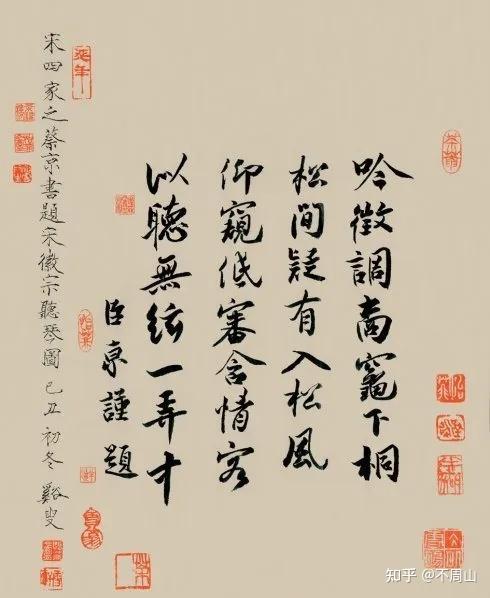 吟徵調商竈下桐
松間疑有入松風
仰窺低審含情客
似聽無絃一弄中
臣京謹題
宋四家之蔡京書題宋徽宗聽琴圖 己丑初冬 谿叟
延年
知乎 @不周山